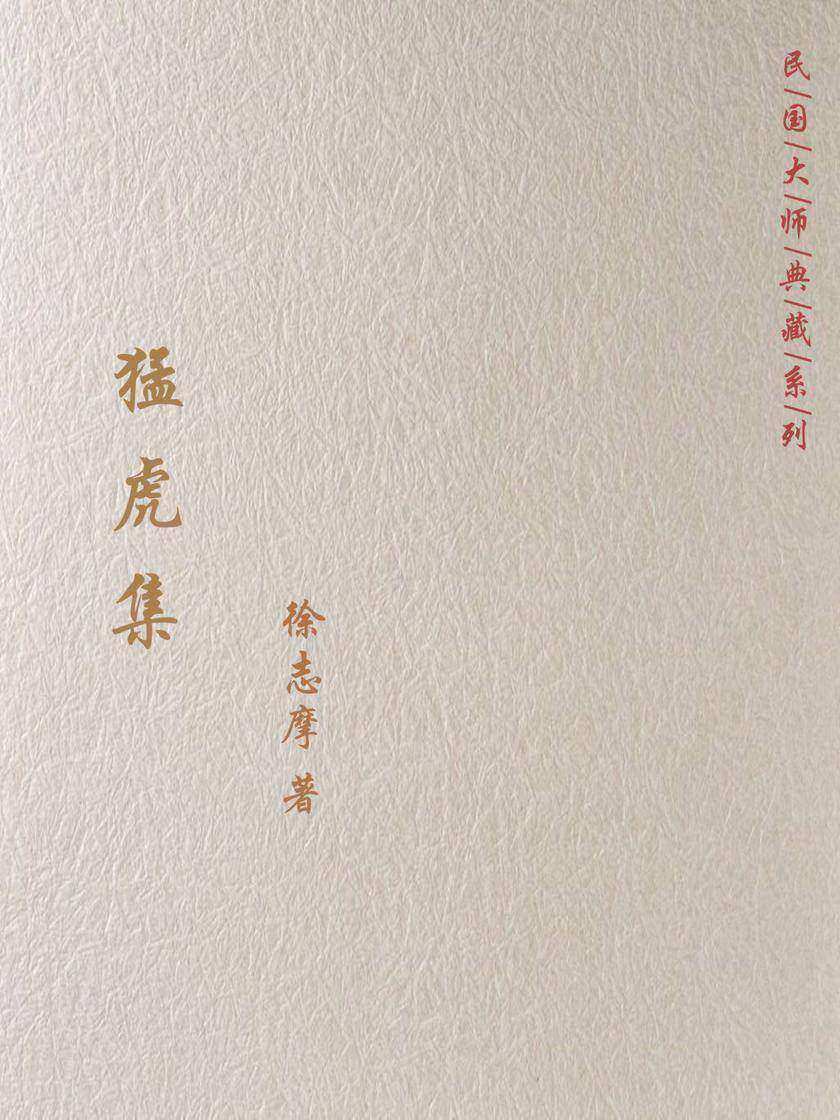 民/国/大/师/典/藏/系/列
猛虎集
徐志摩 著